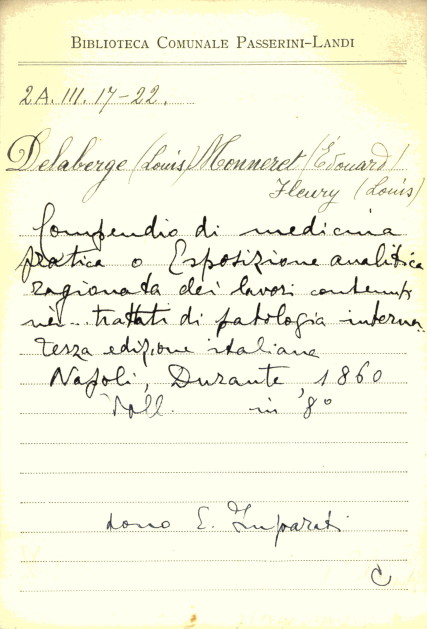 BIBLIOTECA COMUNALE PASSERINI-LANDI
2A. III. 17-22.
Delaberge (Louis) Monneret (Édouard)
Fleury (Louis)
Compendio di medicina
pratica o Esposizione analitica
ragionata dei lavori contenuti
nei trattati di patologia interna
terza edizione italiana
Napoli, Durante, 1860
Voll. in 8°
dono E.
C